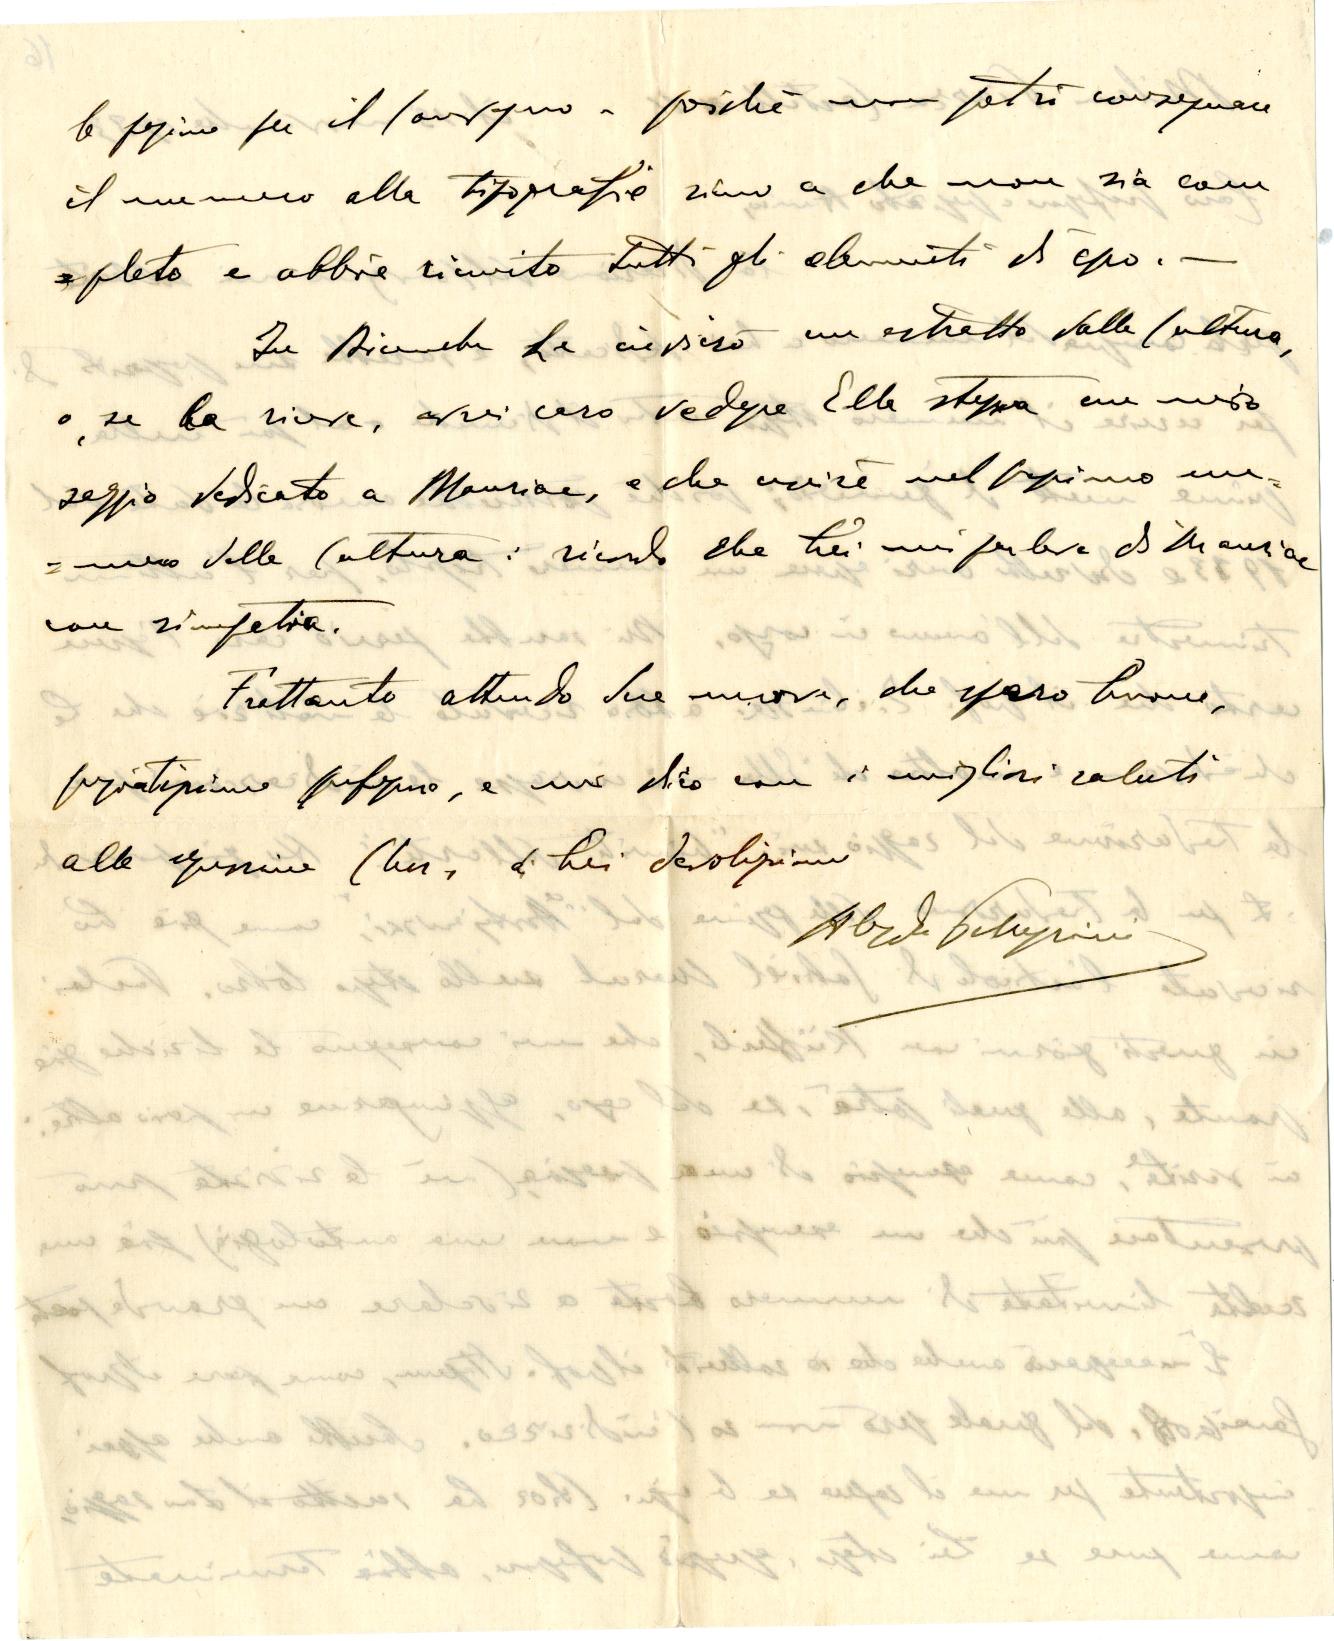 le pagine per il Convegno – poichè non potrò consegnare
il numero alla tipografia sino a che non sia com
=pleto e abbia ricevito tutti gli elementi di esso. —
In Le invierò un estratto dalla Cultura,
o, se la riceve, avrei caro vedesse Ella stessa un mio
saggio dedicato a Mauriac, e che uscirà nel prossimo nu=
=mero della Cultura: ricordo che Lei mi parlava di Mauriac
con simpatia.
Frattanto attendo Sue nuove, che spero buone,
pregiatissimo professore, e mi dico con i migliori saluti
alla Char, di Lei devotissimo
Aless. Pellegrini